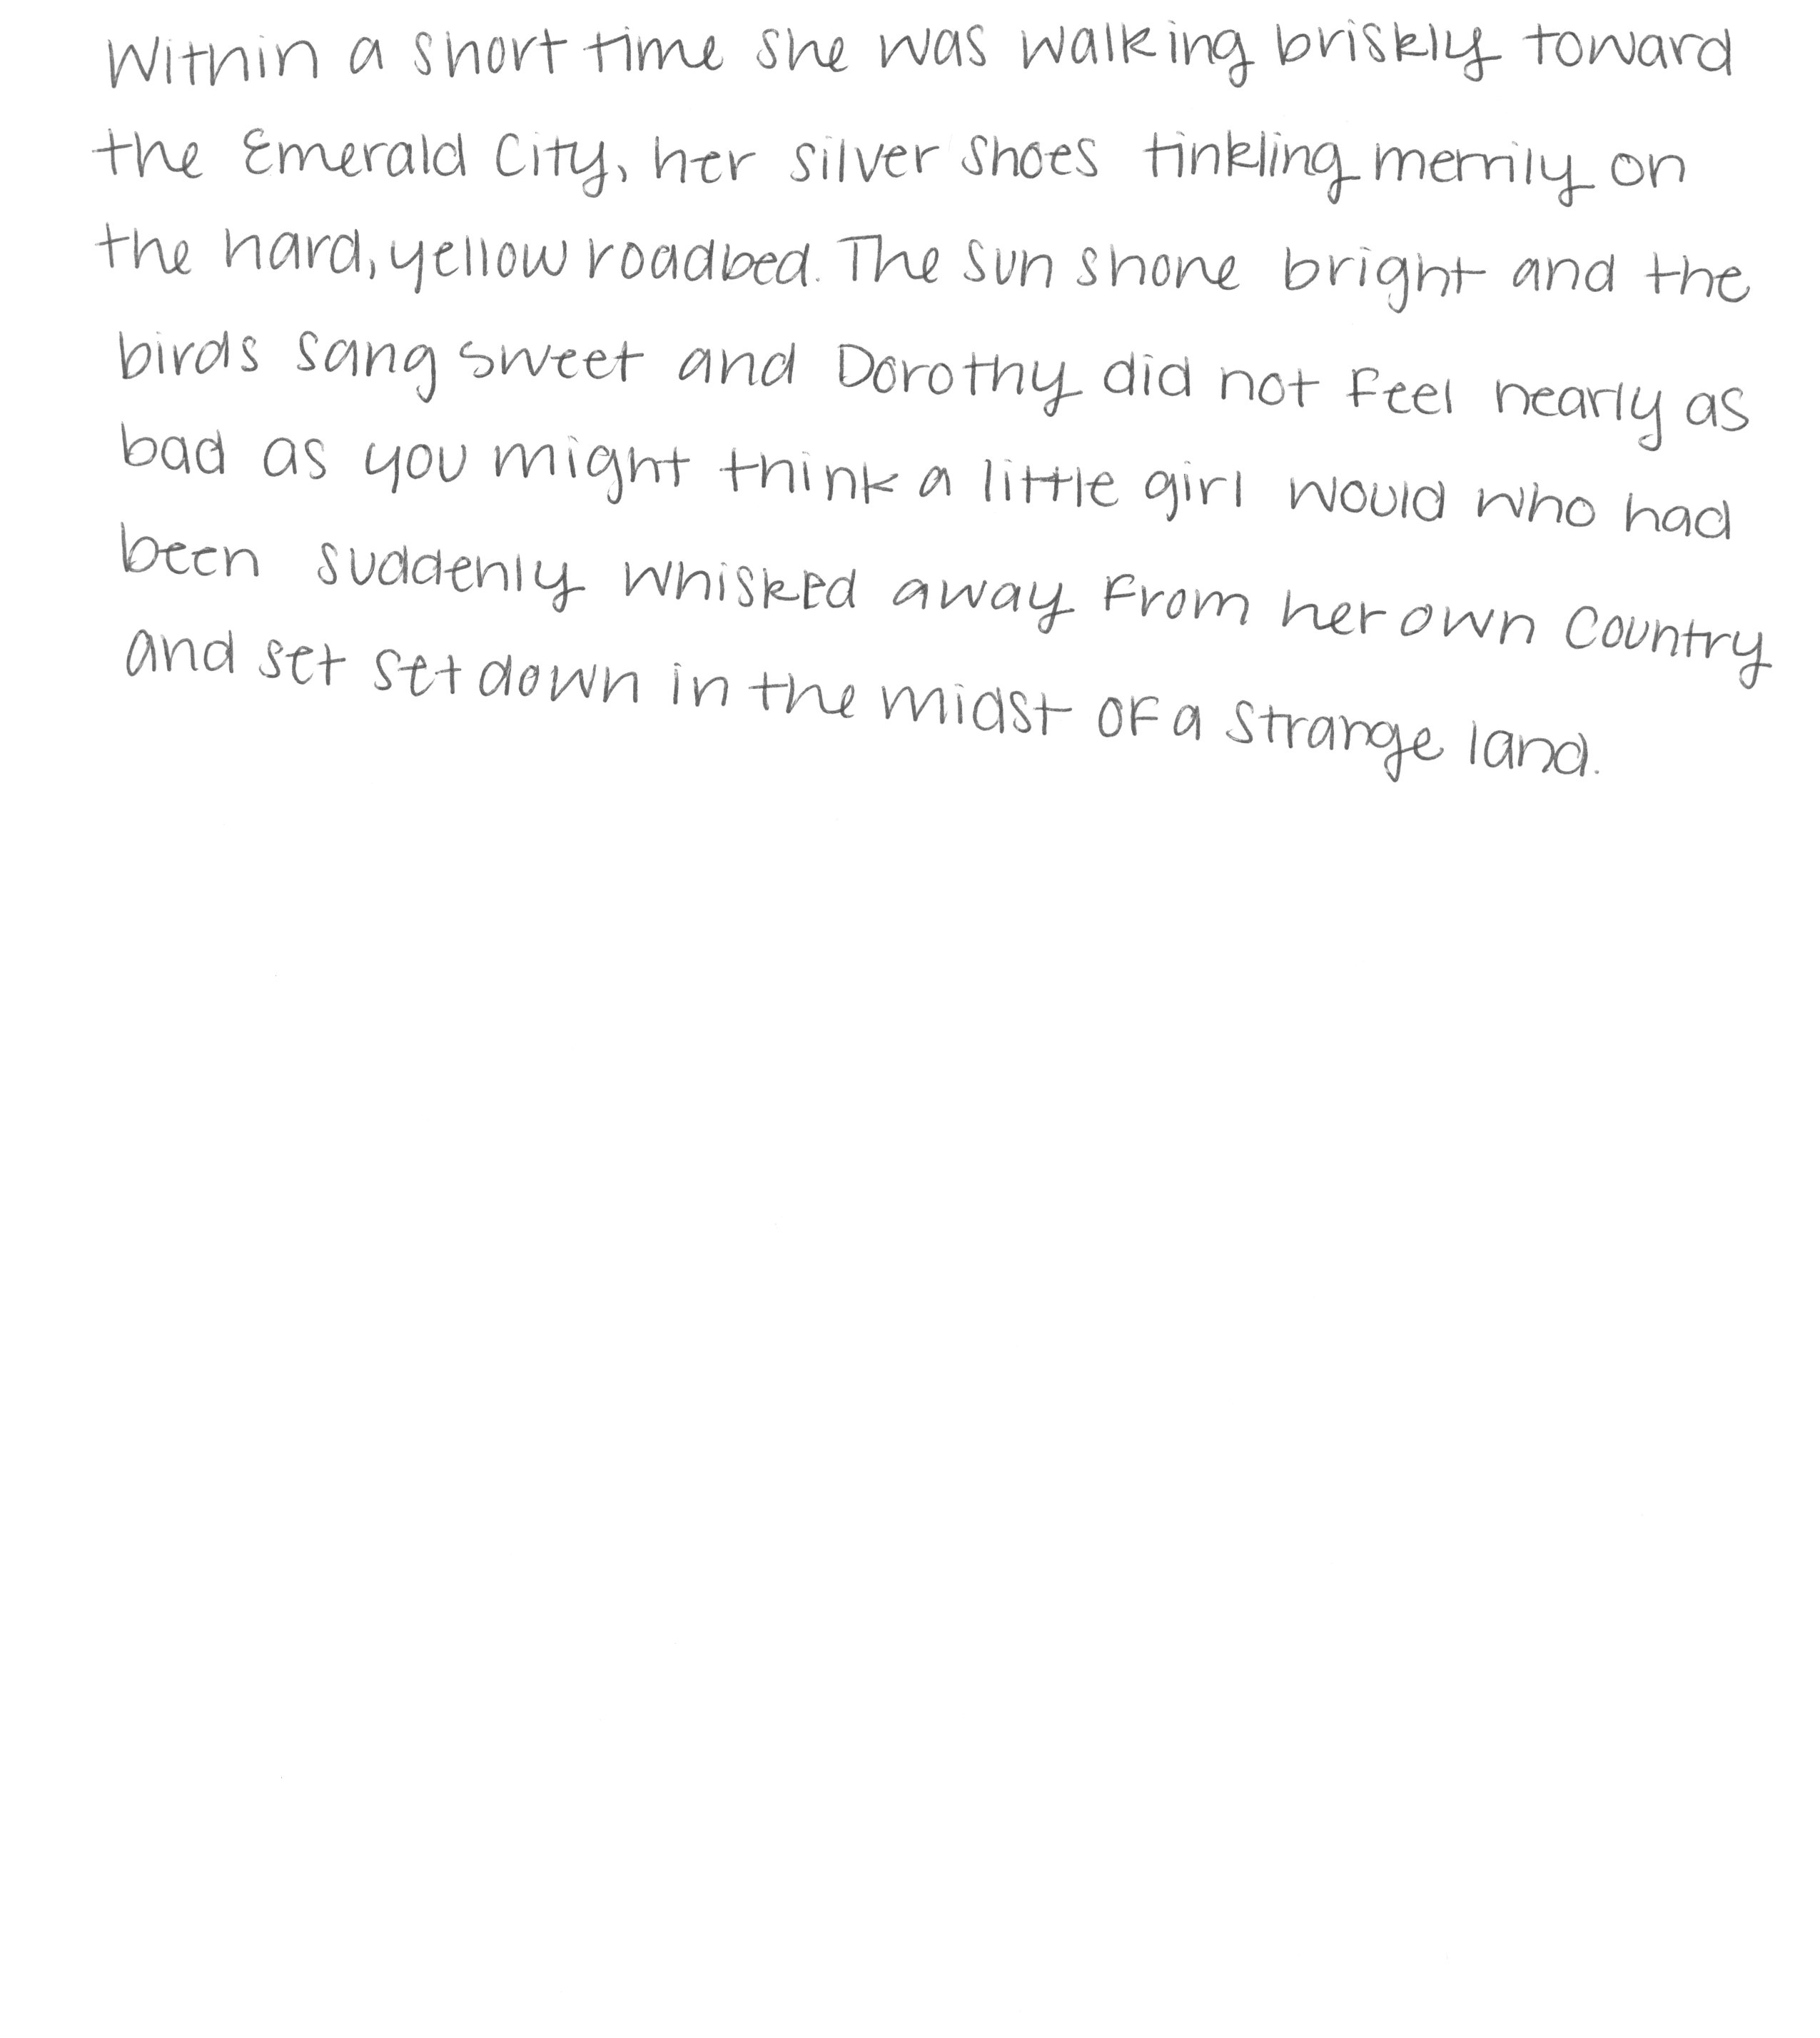 Within a short time she was walking briskly toward
the Emerald City, her silver shoes tinkling merrily on
the hard, yellow roadbed. The sun shone bright and the
birds sang sweet and Dorothy did not feel nearly as
bad as you might think a little girl would who had
been suddenly whisked away from her own country
and set set down in the midst of a strange land.